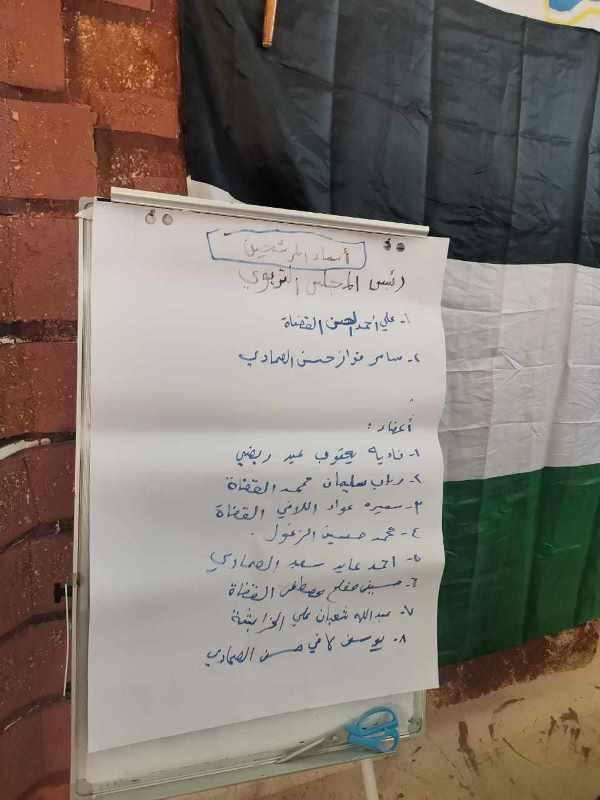 أسماء المرشحين
رئيس المجلس التربوي
١- علي أحمد الحسن القضاة
٢- سامر فواز حسن الصمادي
أعضاء:
١- فاديه يعقوب عيد ربضي
٢- رباب سليمان محمد القضاة
٣- سميره عواد اللافي القضاة
٤- محمد حسين الزغول.
٥- احمد عايد سعد الصمادي
٦- حسين مفلح مصطفى القضاة
٧- عبدالله شعبان علي الخرابشة
٨- يوسف كافي حسن الصمادي